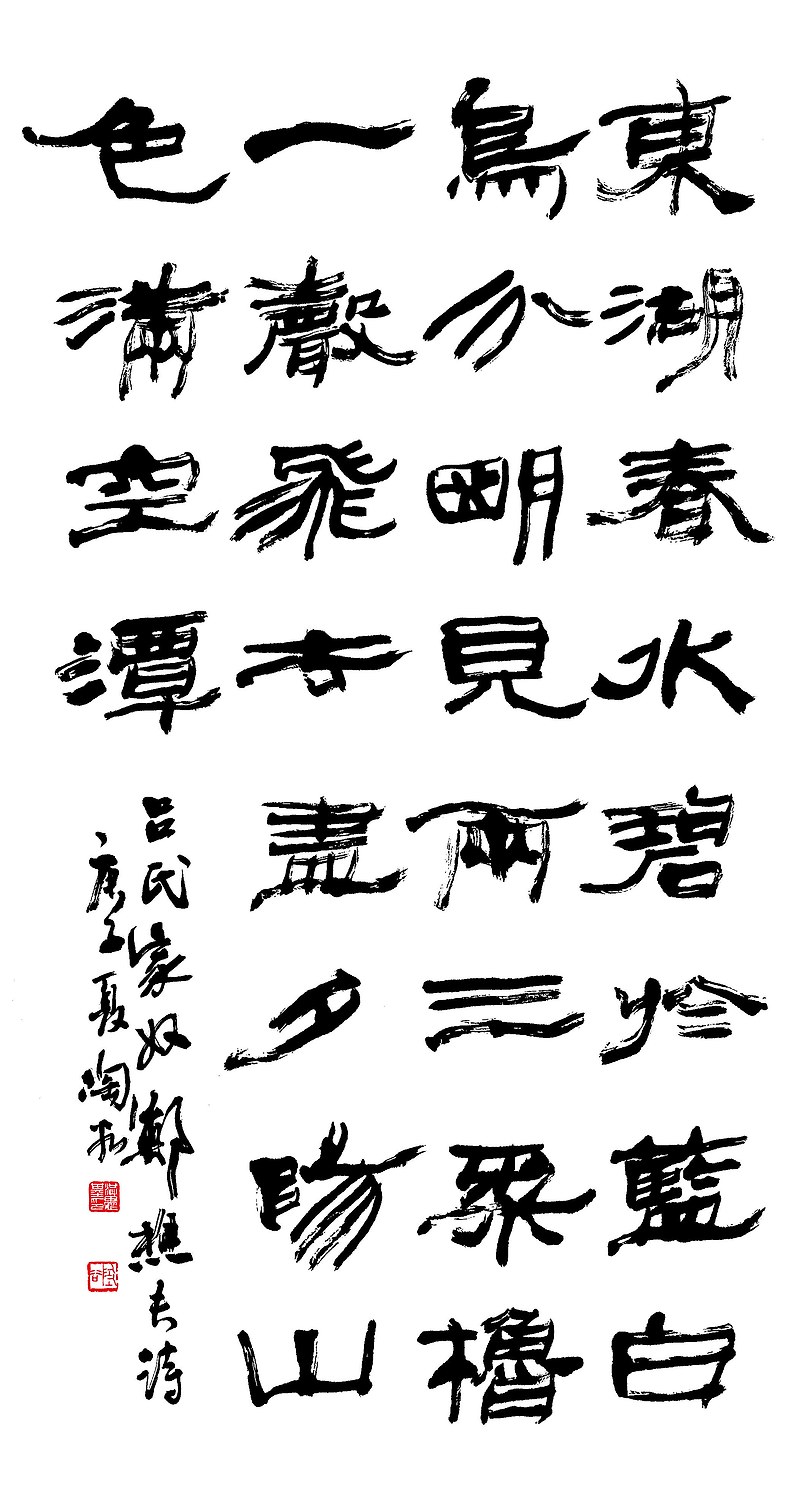 東湖春水碧於藍白
鳥分明見兩三眾櫓
一聲飛去盡夕陽山
色滿空潭
呂氏家奴鄭樵夫詩
庚子夏